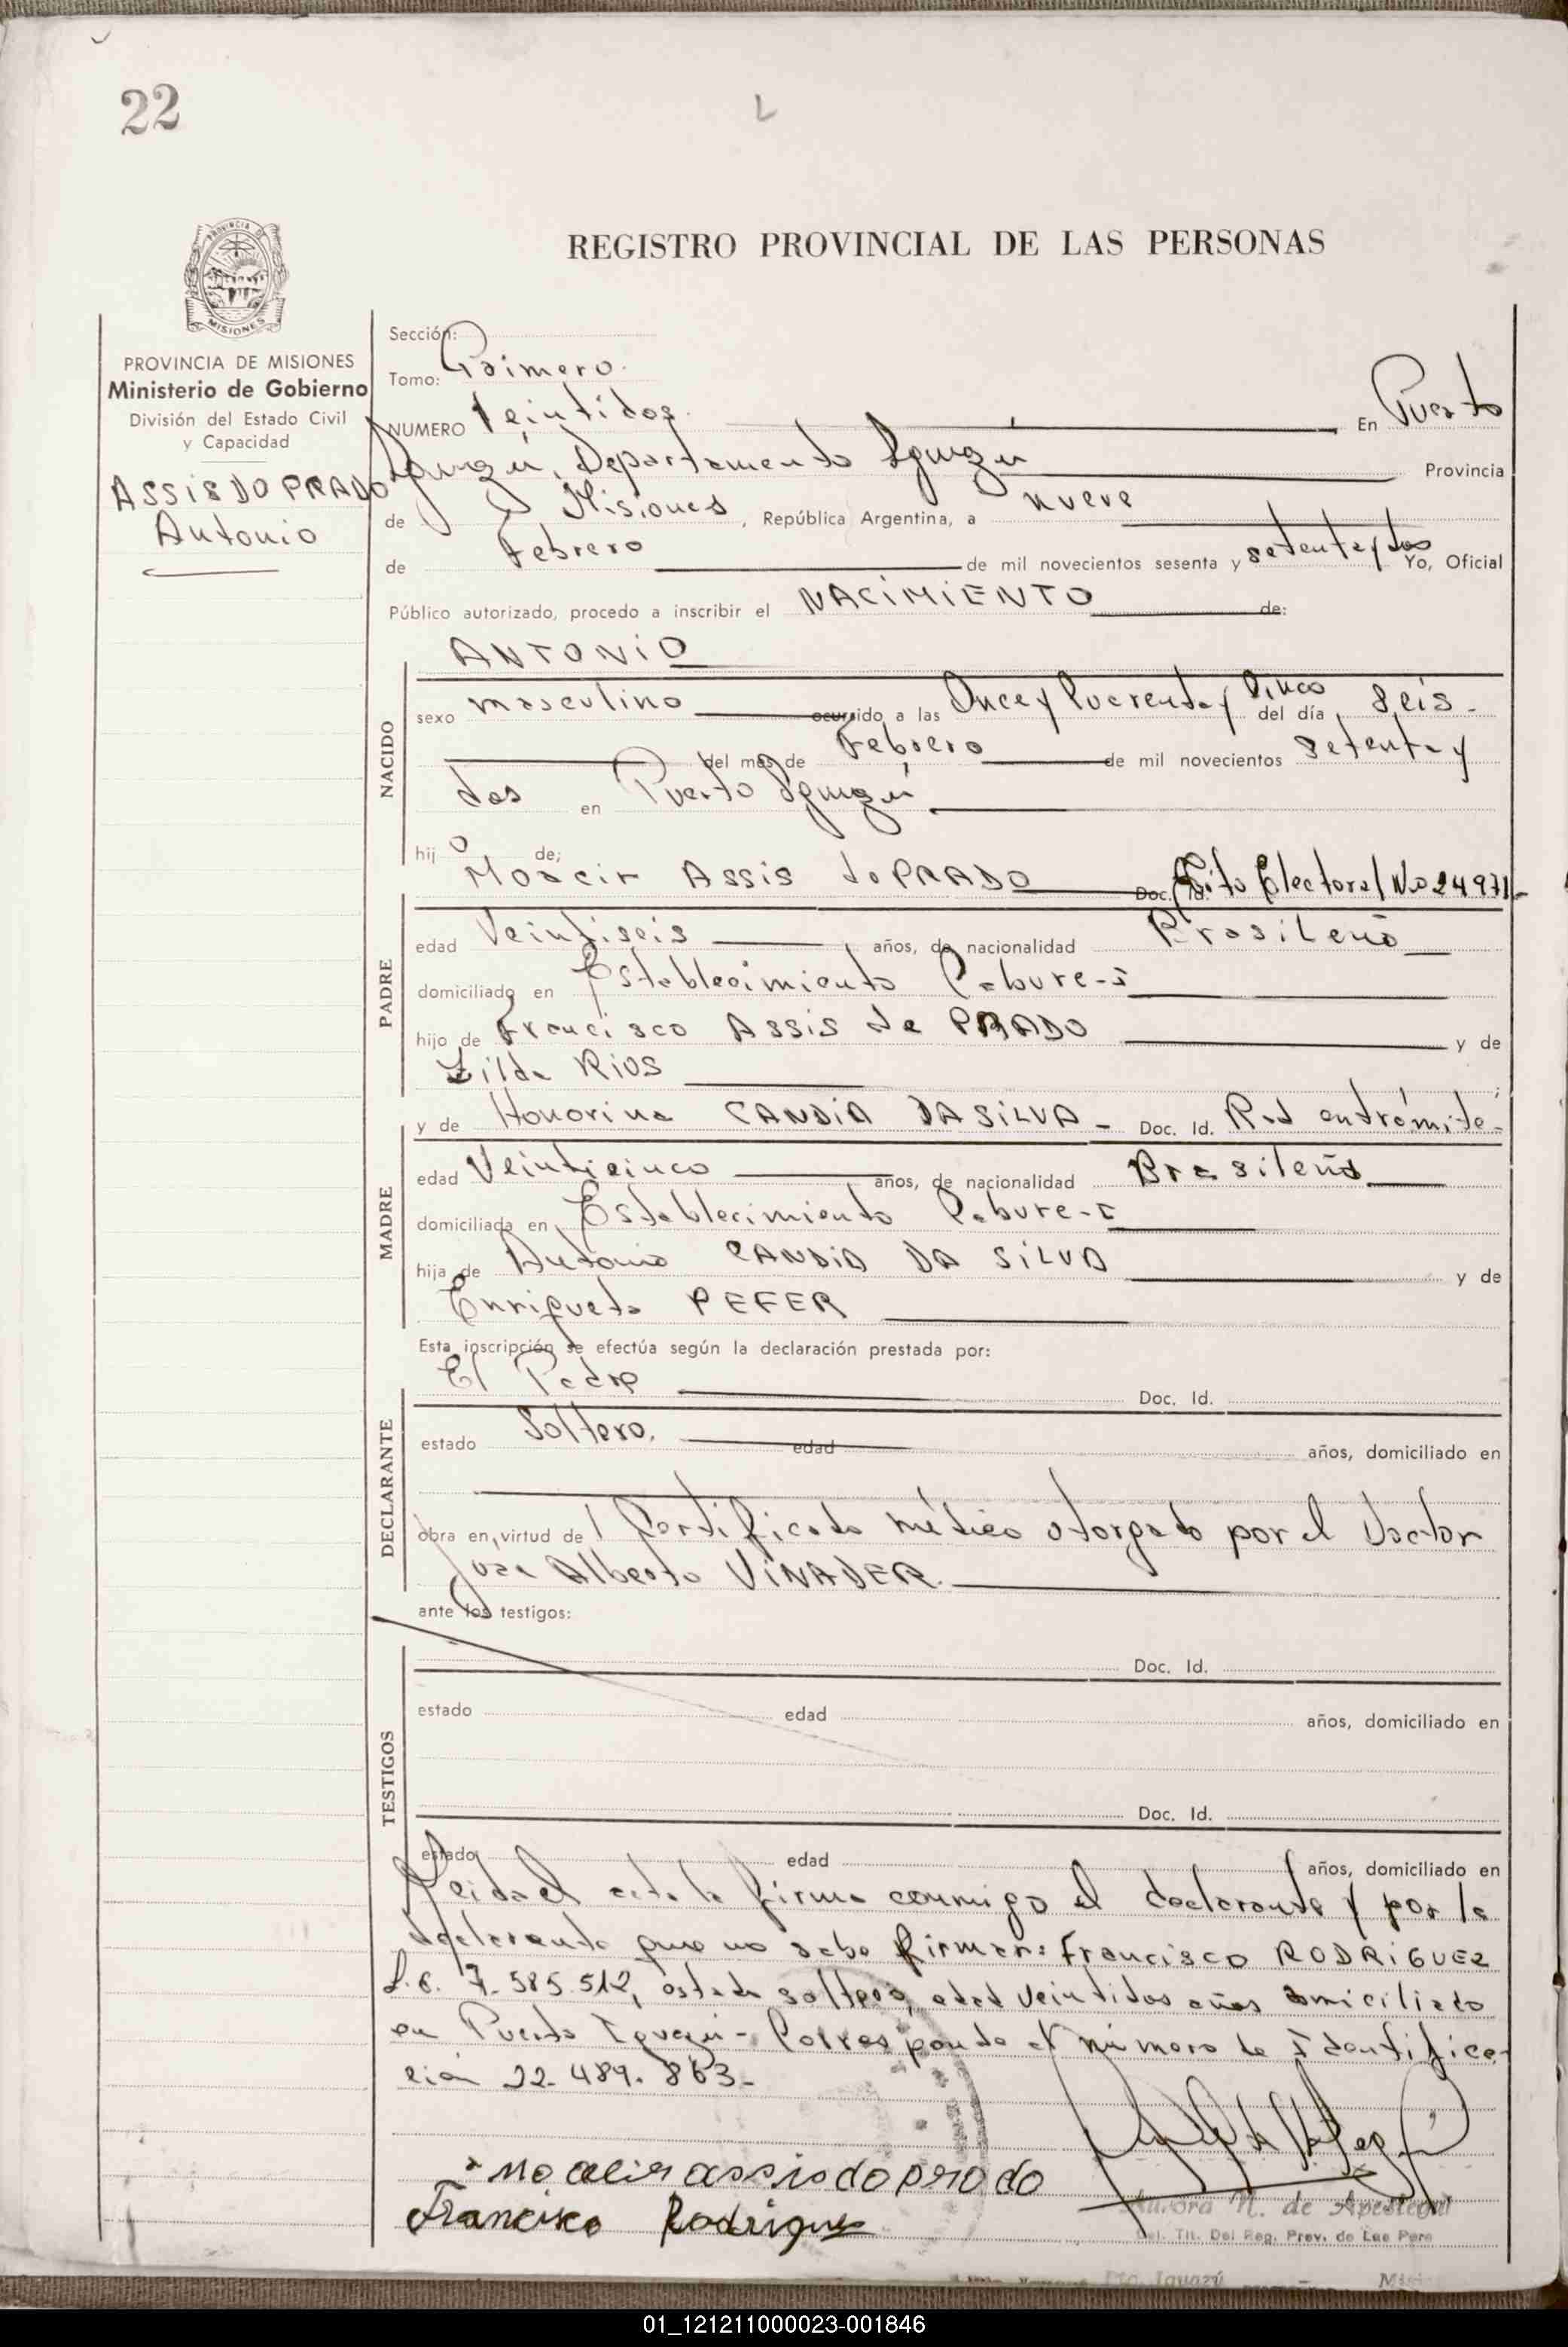 22
REGISTRO PROVINCIAL DE LAS PERSONAS
MISIONES
PROVINCIA DE MISIONES
Ministerio de Gobierno
División del Estado Civil
y Capacidad
ASSIS DO PRADO
Antonio
Sección:
Tomo: Primero.
NUMERO Veintidos. En Puerto
Iguazú, Departamento Iguazú Provincia
de Misiones, República Argentina, a nueve
de Febrero de mil novecientos sesenta y setenta y dos Yo, Oficial
Público autorizado, procedo a inscribir el NACIMIENTO de:
NACIDO
ANTONIO
sexo masculino ocurrido a las Once y Cuarenta y Cinco del día Seis-
del mes de Febrero de mil novecientos setenta y
dos en Puerto Iguazú
hijo de;
PADRE
Moacir ASSIS do PRADO Doc. Id. Tito Electoral No 24971-
edad Veintiseis años, de nacionalidad Brasileño
domiciliado en Establecimiento Cabure-I
hijo de Francisco ASSIS de PRADO y de
Zilda RIOS ;
MADRE
y de Honorina CANDIA DA SILVA - Doc. Id. Rad en trámite-
edad Veinticinco años, de nacionalidad Brasileña
domiciliada en Establecimiento Cabure-I
hija de Antonio CANDIA DA SILVA y de
Enriqueta PEFER
Esta inscripción se efectúa según la declaración prestada por:
DECLARANTE
El Padre Doc. Id.
estado Soltero. edad años, domiciliado en
obra en virtud del Certificado médico otorgado por el Doctor
Jose Alberto VINADER.
ante los testigos:
TESTIGOS
Doc. Id.
estado edad años, domiciliado en
Doc. Id.
estado edad años, domiciliado en
Leida el acta la firma conmigo el declarante y por la
declarante que no sabe firmar: Francisco RODRIGUEZ
L.E. 7.585.512, estado soltero, edad veintidos años domiciliado
en Puerto Iguazú - Corresponde el número de Identifica-
ción 22.489.863-
moacir assis do prado
Francisco Rodrigues
Aurora N. de Apestegui
Del. Tit. Del Reg. Prov. de Las Pers
Pto. Iguazú
01_121211000023-001846